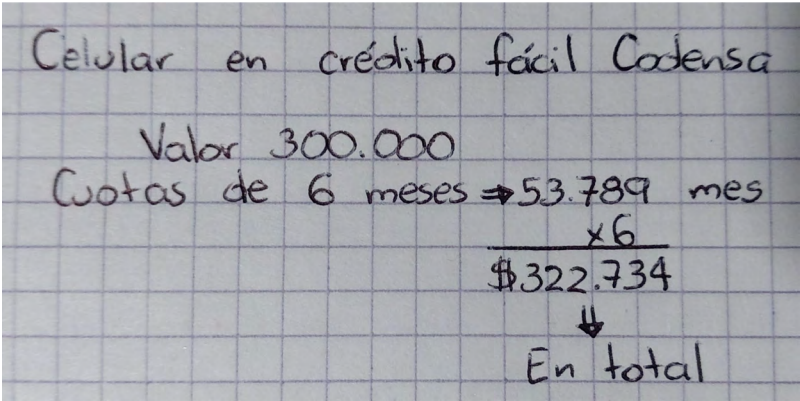 Celular en crédito fácil Codensa
Valor 300.000
Cuotas de 6 meses ⇒ 53.789 mes
x6
$322.734
⇓
En total